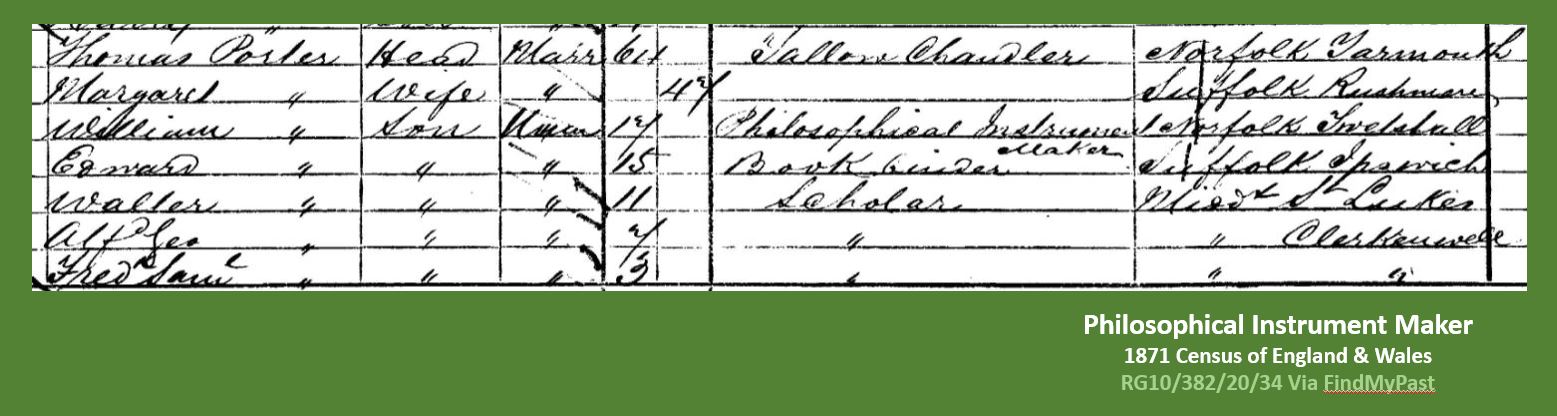 Thomas Porter Head Marr 64 Tallow Chandler Norfolk Yarmouth
Margaret " Wife " 47 Suffolk Rushmere
William " Son Unm 17 Philosophical Instrument Norfolk
Maker
Edward " " " 15 Book binder Suffolk Ipswich
Walter " " " 11 Scholar Midd St Lukes
Alfd Geo " " " 7 " " Clerkenwell
Fredk Saml " " " 3 " " "
Philosophical Instrument Maker
1871 Census of England & Wales
RG10/382/20/34 Via FindMyPast